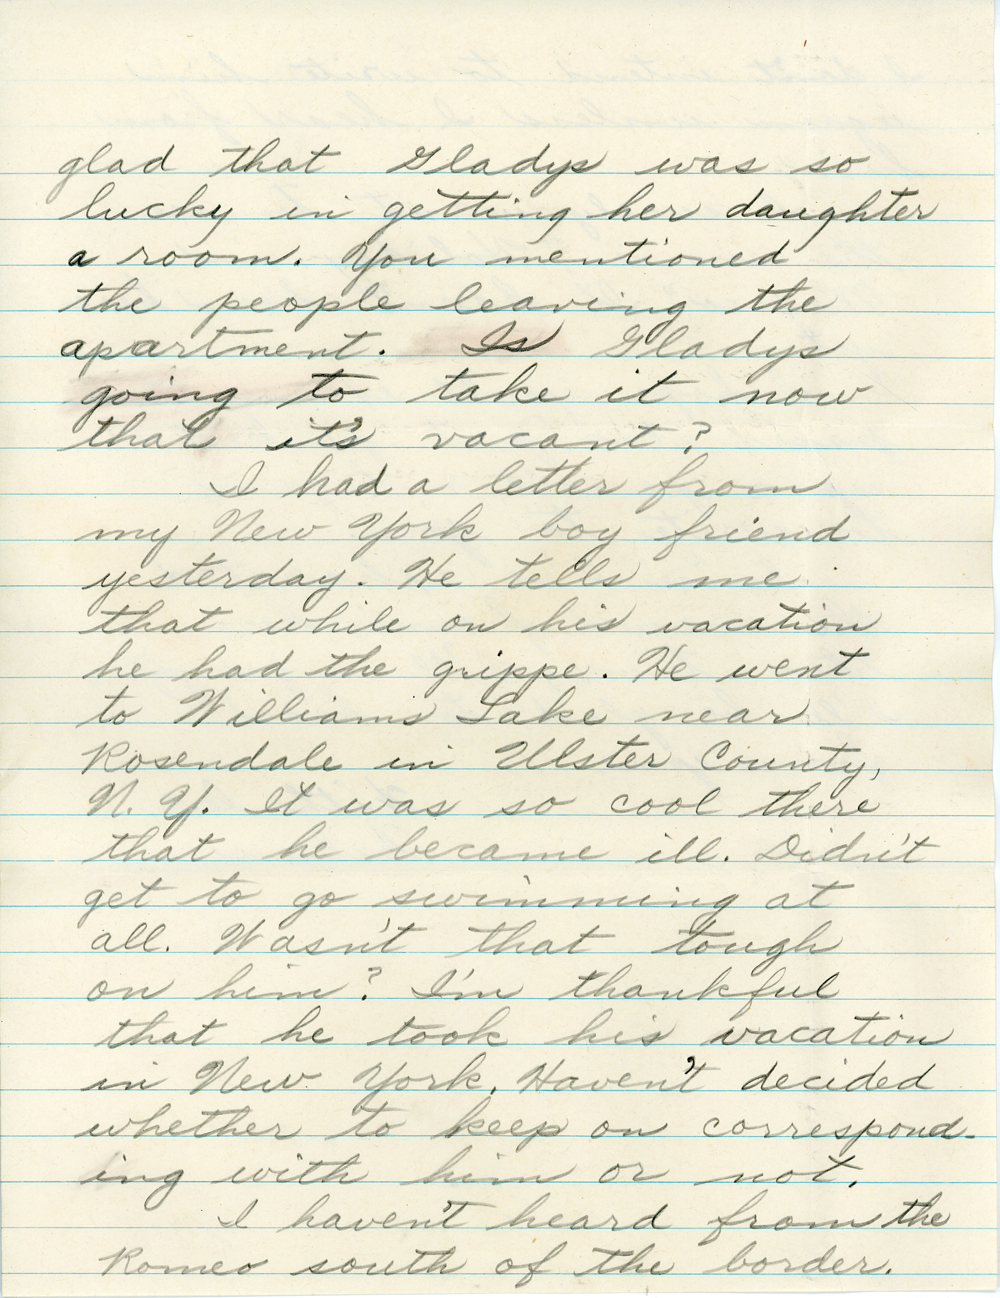 glad that Gladys was so
lucky in getting her daughter
a room. You mentioned
the people leaving the
apartment. Is Gladys
going to take it now
that it's vacant?
I had a letter from
my New York boy friend
yesterday. He tells me
that while on his vacation
he had the grippe. He went
to Williams Lake near
Rosendale in Ulster County,
N. Y. It was so cool there
that he became ill. Didn't
get to go swimming at
all. Wasn't that tough
on him? I'm thankful
that he took his vacation
in New York. Haven't decided
whether to keep on correspond-
ing with him or not.
I haven't heard from the
Romeo south of the border.